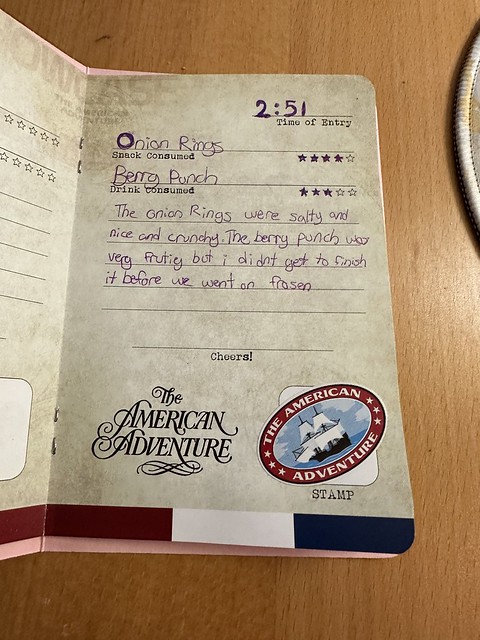 2:51
Time of Entry
Onion Rings
Snack Consumed
Berry Punch
Drink Consumed
The onion Rings were salty and
nice and crunchy. The berry punch was
very frutiy but i didnt get to finish
it before we went on frosen
Cheers!
The
AMERICAN
ADVENTURE
THE AMERICAN
ADVENTURE
STAMP